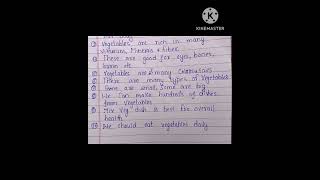 KINEMASTER
② Vegetables are rich in many
vitamins, Minerals & fiber.
③ These are good for eyes, bones,
brain etc
④ Vegetables are many colours
⑤ There are many types of vegetables
⑥ Some are small, Some are big
⑦ We can make hundreds of dishes
from vegetables
⑧ Mix veg dish is best for overall
health.
⑩ We should eat vegetables daily